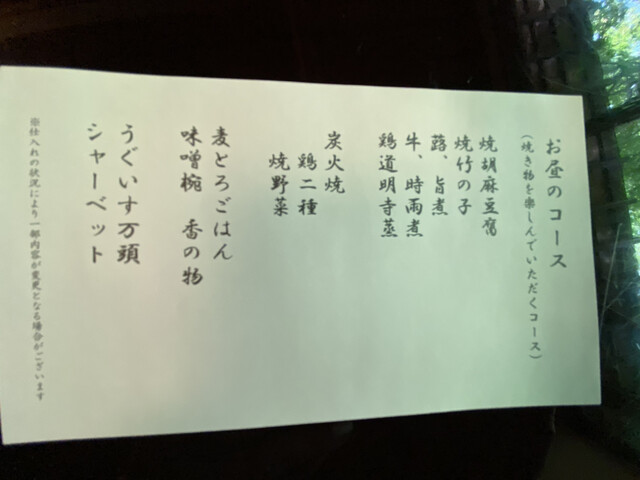 お昼のコース
(焼き物を楽しんでいただくコース)
焼胡麻豆腐
焼竹の子
蕗、旨煮
牛、時雨煮
鶏道明寺蒸
炭火焼
鶏二種
焼野菜
麦とろごはん
味噌椀 香の物
うぐいす万頭
シャーベット
※仕入れの状況により一部内容が変更となる場合がございます